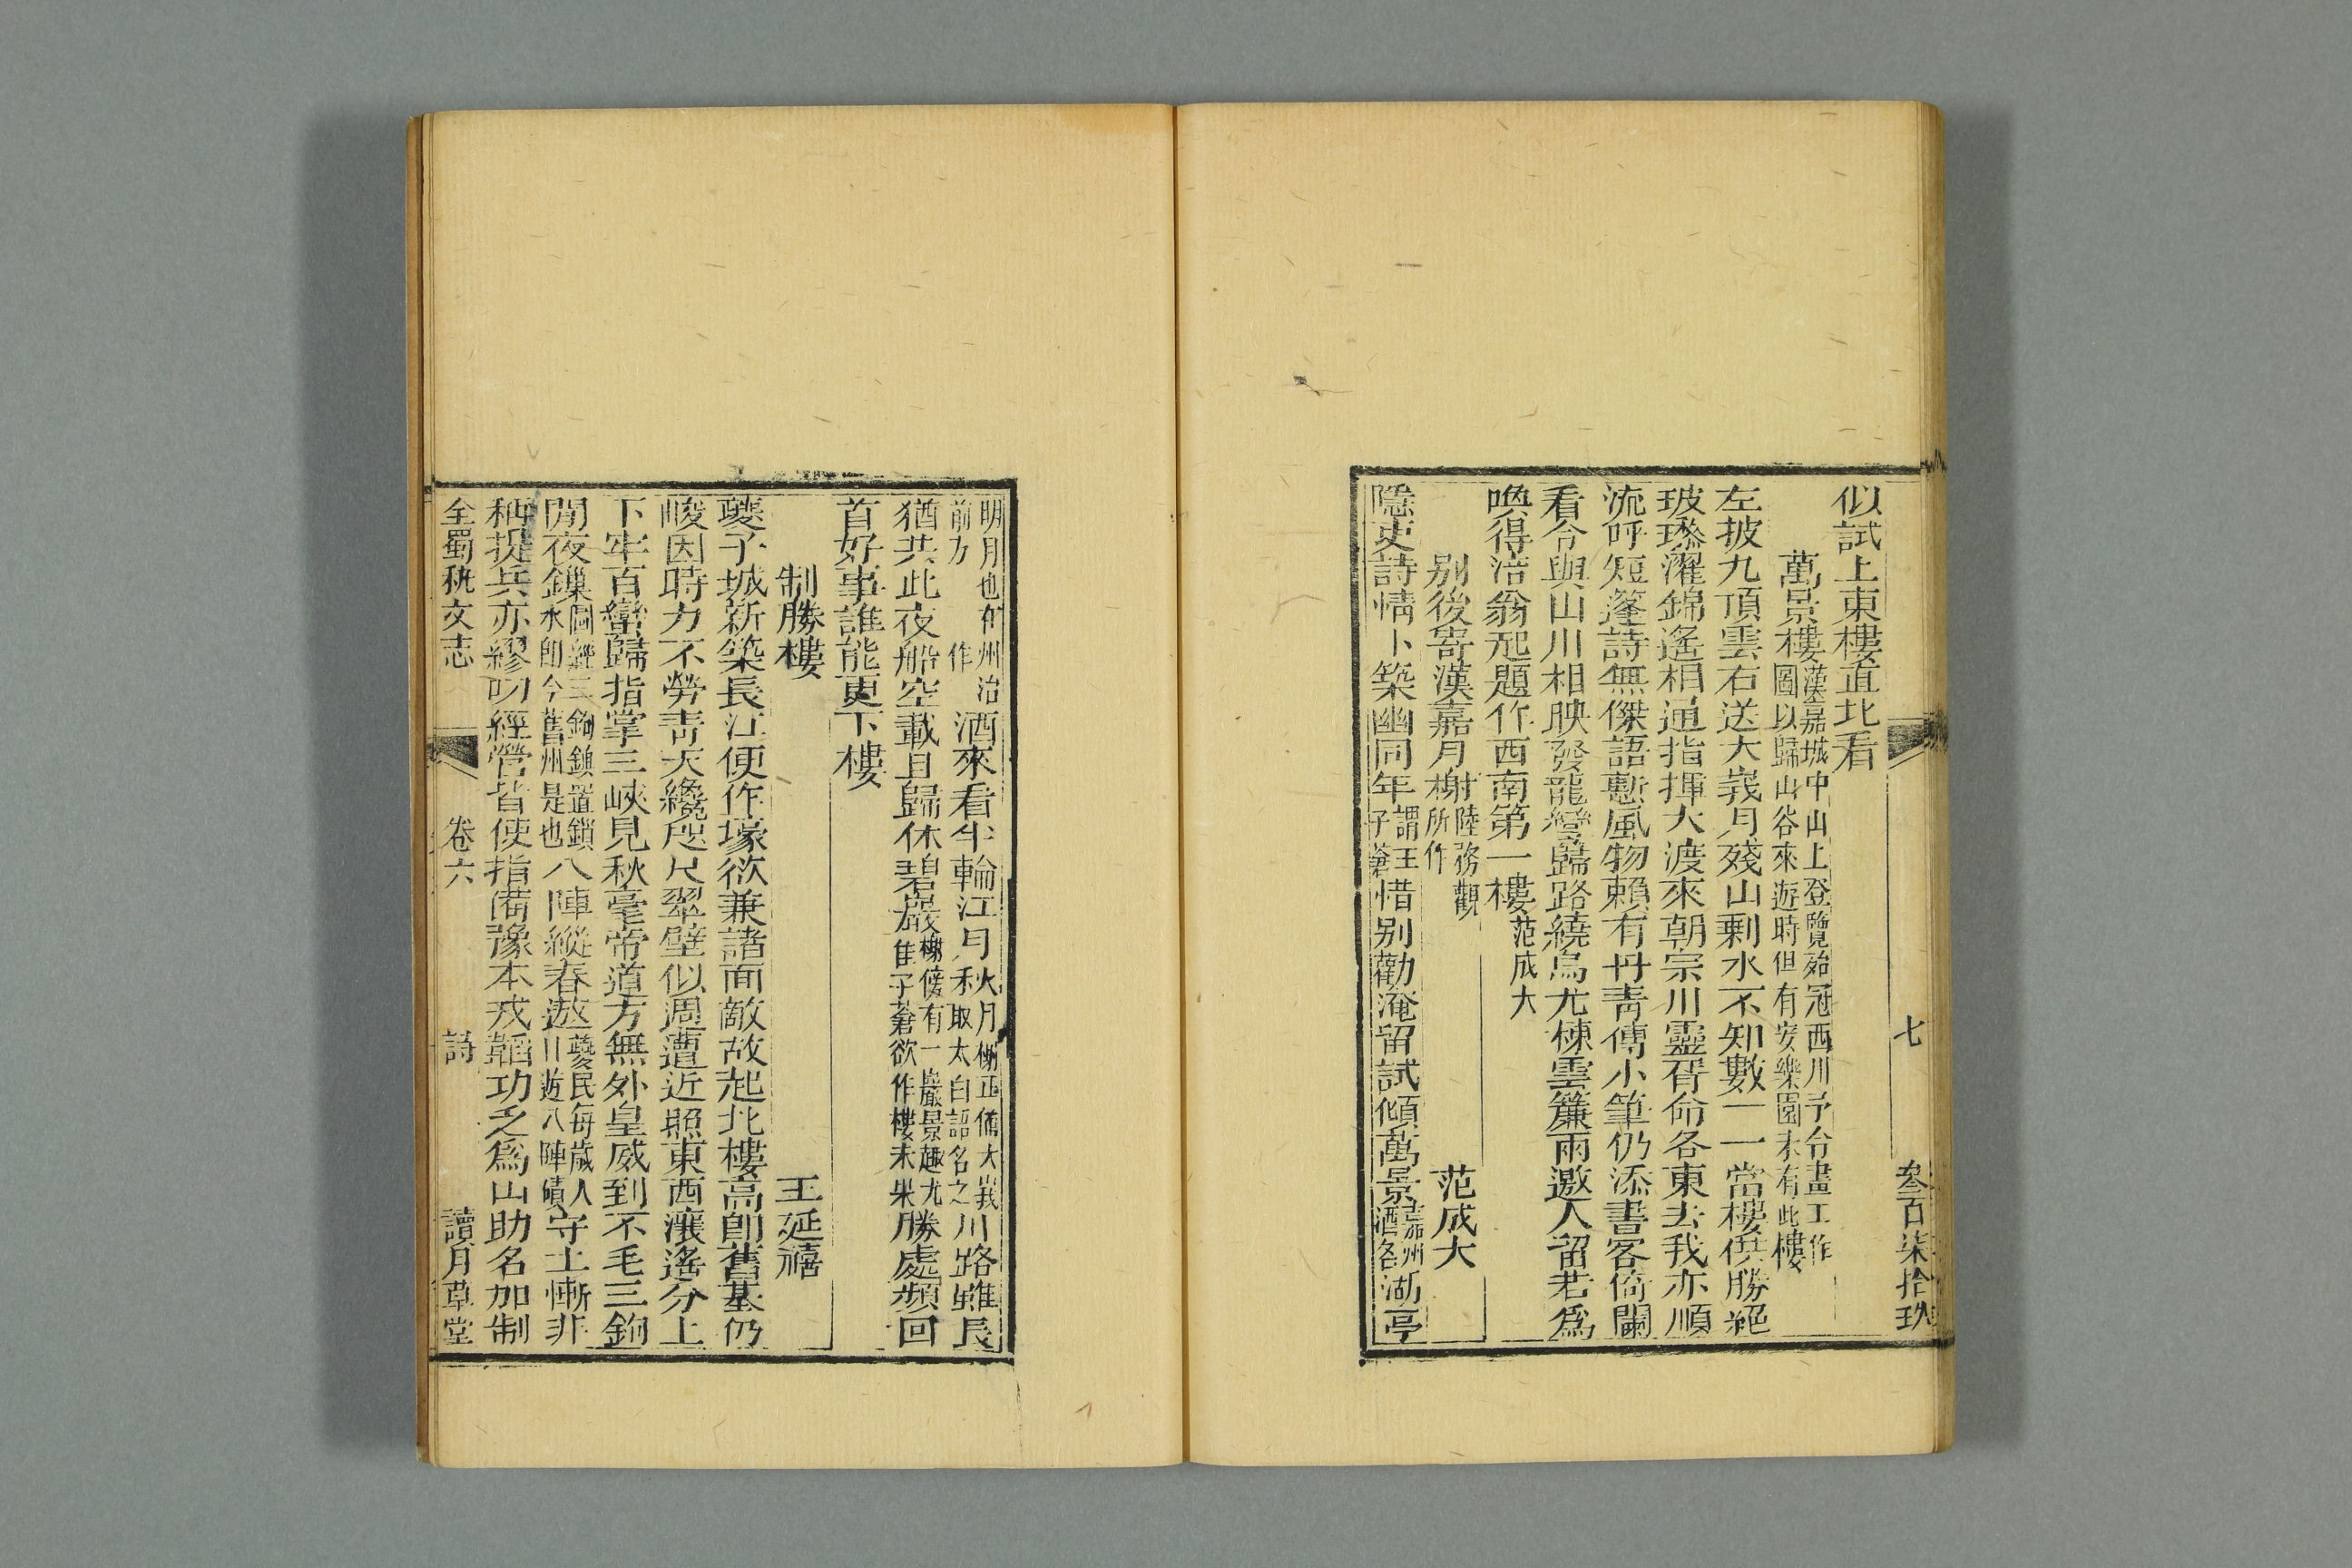 七 叁百柒拾玖
似試上東樓直北看
萬景樓漢嘉城中山上登覽殆冠西川予令畫工作圖以歸山谷來遊時但有安樂園未有此樓
左披九頂雲右送大峩月殘山剩水不知數一一當樓供勝絕
玻瓈濯錦遙相通指揮大渡來朝宗川靈胥命各東去我亦順
流呼短篷詩無傑語慙風物賴有丹青傳小筆仍添書客倚闌
看令與山川相映發龍彎歸路繞烏尤棟雲簾雨邀人留若爲
喚得涪翁起題作西南第一樓范成大
別後寄漢嘉月榭陸務觀所作 范成大
隱吏詩情卜築幽同年謂王子蒼惜别勸淹留試傾萬景嘉州酒名湖亭
明月也在州治前方作酒來看半輪江月秋月榭正價大峩秋取太白詔名之川路雖長
猶共此夜船空載且歸休碧巖榭傍有一巖景趣尤佳子蒼欲作樓未果勝處頻回
首好事誰能更下樓
制勝樓 王延禧
夔子城新築長江便作壕欲兼諸面敵故起北樓高卽舊基仍
峻因時力不勞青天纔咫尺翠壁似周遭近照東西瀼遙分上
下牢百蠻歸指掌三峽見秋毫帝道方無外皇威到不毛三鉤
閒夜鏁圖經三鉤鎖置鎖水卽今舊州是也八陣縱春遨夔民每歲人川遊八陣磧守土慚非
稱提兵亦繆叨經營皆使指備豫本戎韜功乏爲山助名加制
全蜀秇文志 卷六 詩 讀月草堂